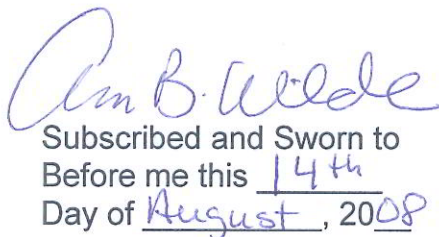 Ann B. Wilde
Subscribed and Sworn to
Before me this 14th
Day of August, 2008